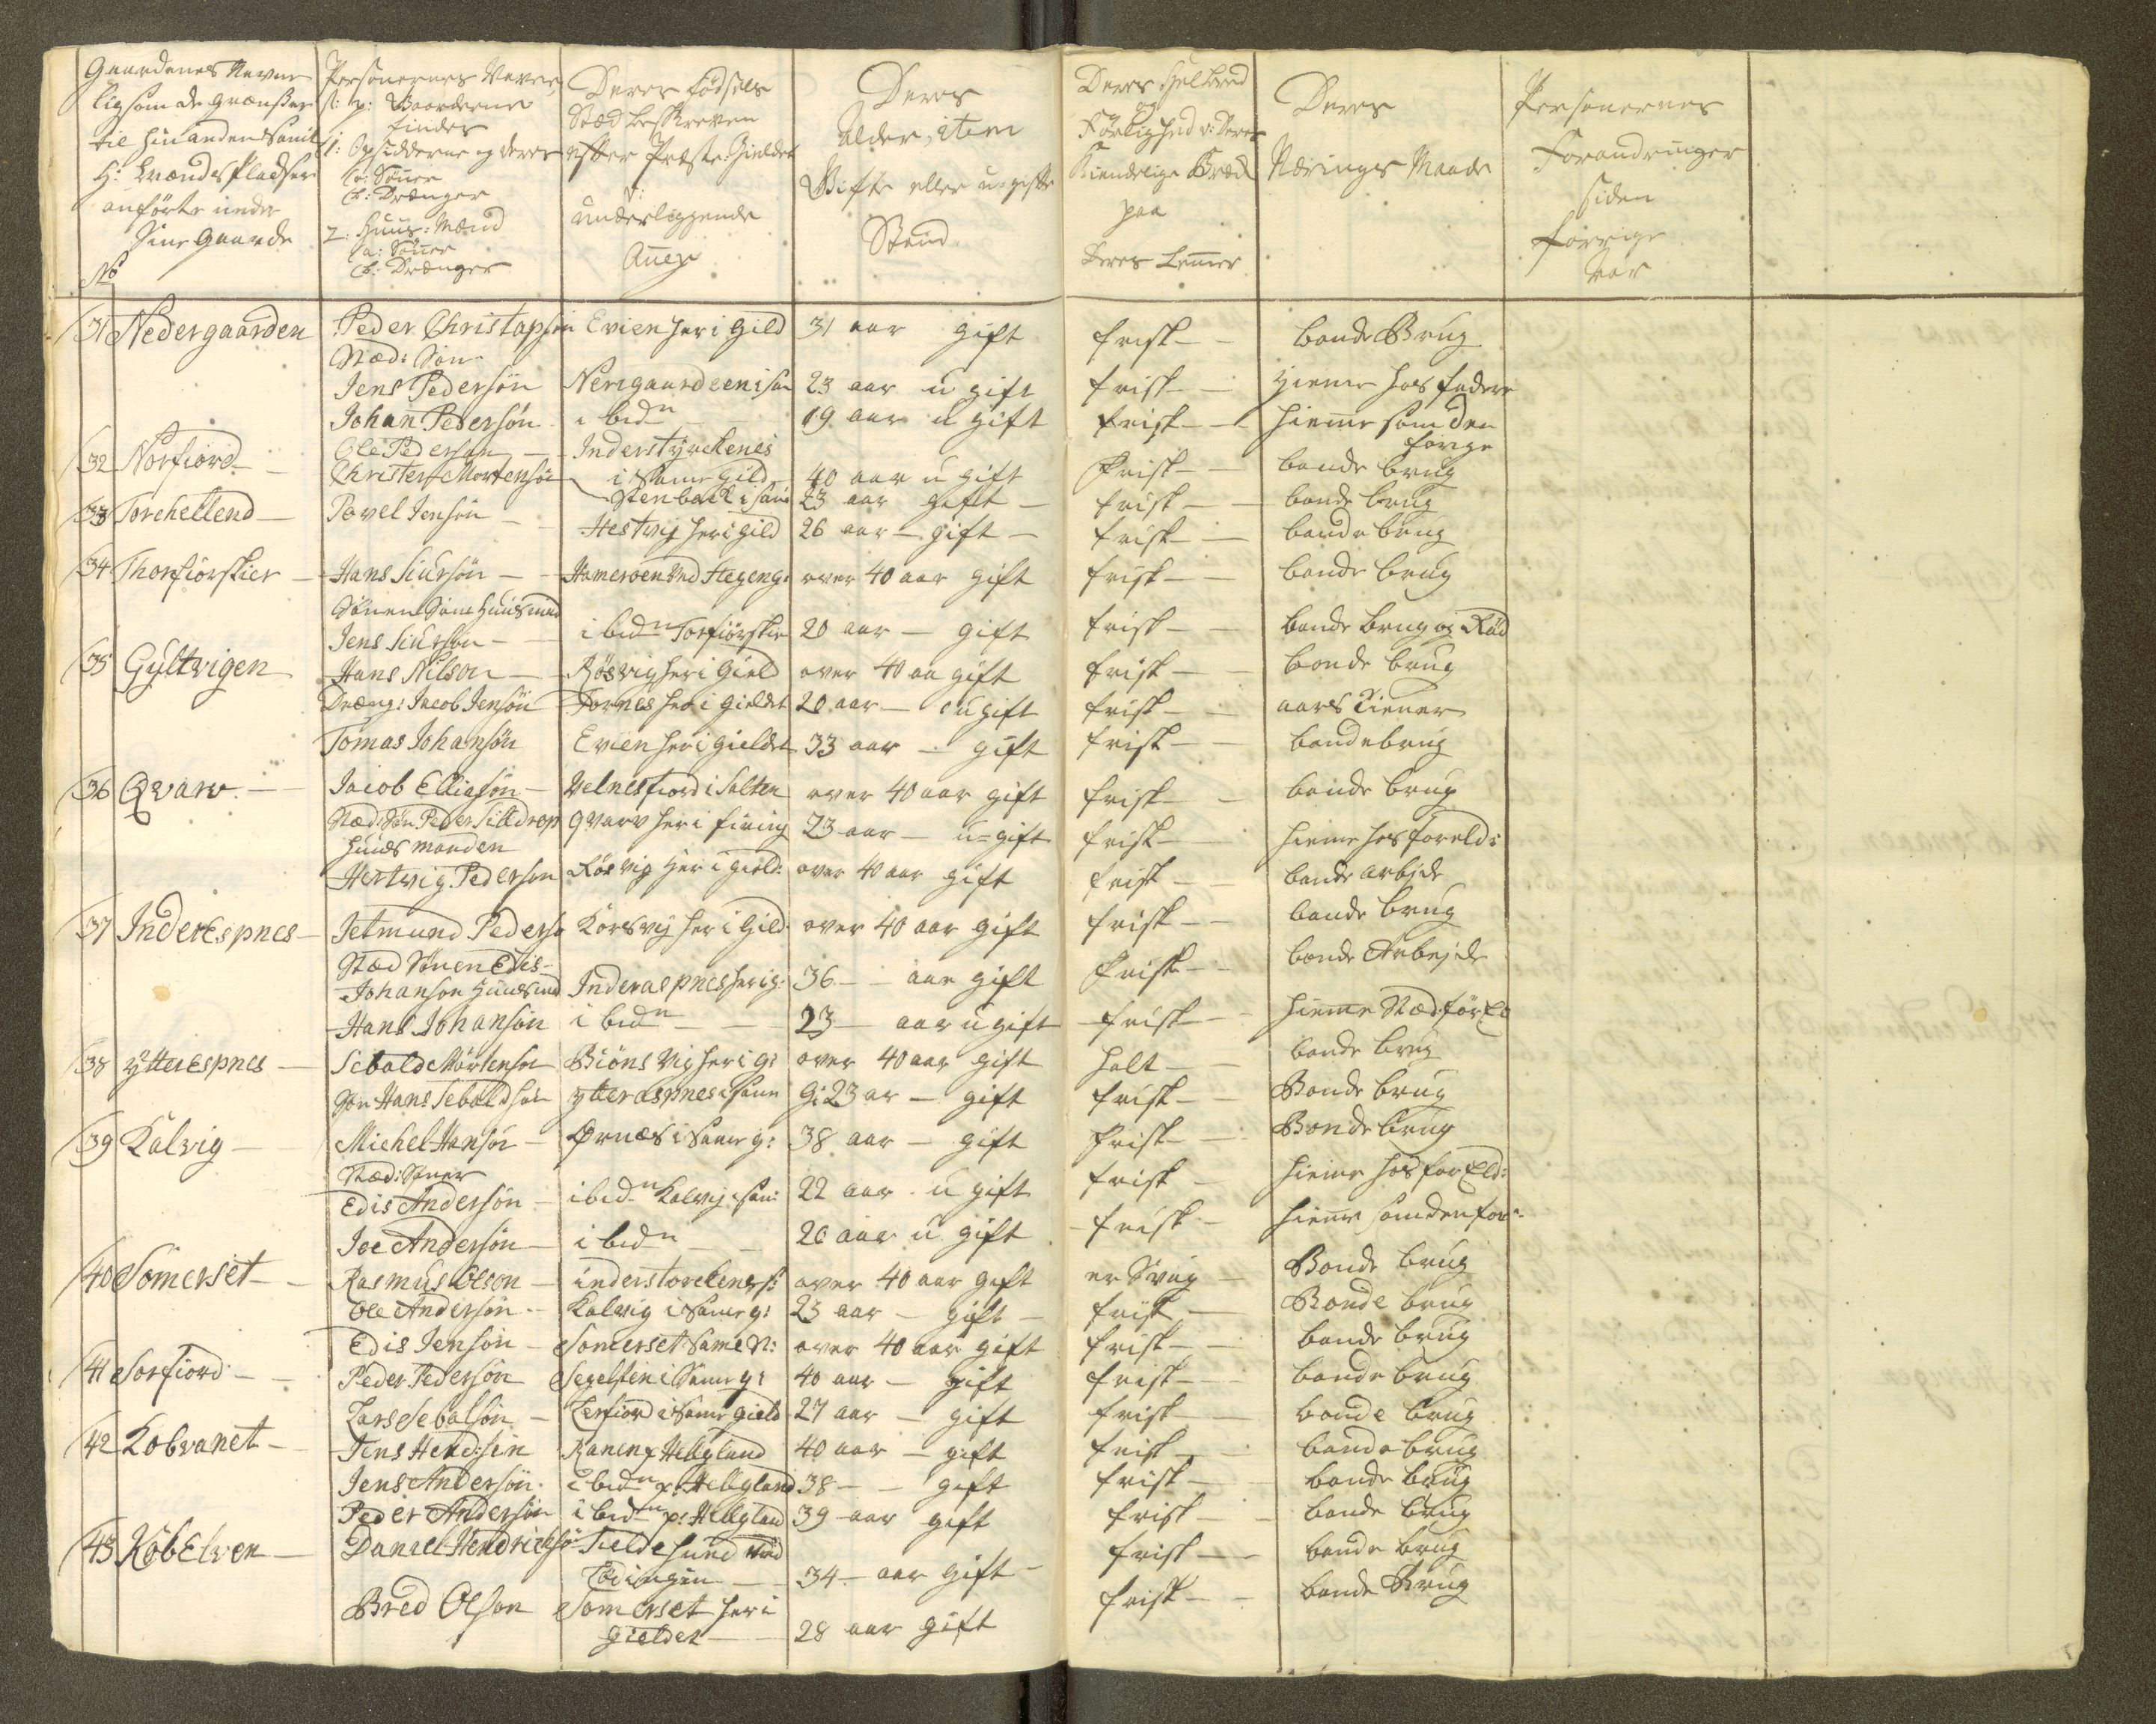 Gaardenes Navne
lig som de grænsser
til hinanden samt
H: Brænde Pladser
anførte under
sine Gaarde
No
Personernes Navne,
s: p: Baarderne
findes
1: Opsidderne og deres
a: Sönner
b: Drænger
2: Huus: Mænd
a: Sönner
b: Drænger
Deres födsels
Stæd beskreven
efter Præste: Gieldet
underliggende
Deres
Alder, item
Gifte eller u-gifte
Stand
Deres Helbred
og
Förlighed v: deres
Kiendelige Bræk
paa
Deres Lemmer
Deres
Nærings Maade
Personernes
Forandringer
siden
forrige
Aar
31 Nedergaarden Peder Christophsen Evien her i Gild 31 aar gift frisk bonde Brug
Stæd: Søn
Jens Pedersön Nerigaardeen i sa 23 aar u gift frisk hieme hos faderen
Johan Pedersön ibidn 19 aar u gift frisk hieme som den
forge
Ole Pederson Inderstÿrckenes
32 Norfiord Christen Mortensön i Same Gild 40 aar u gift frisk bonde brug
Stenbach i sam 23 aar gift frisk bonde brug
33 Torchellend Povel Jensön Hestvig her i gild 26 aar gift frisk bonde brug
34 Thorfiorskier Hans Siursön Hameröen Und Stegeng: over 40 aar gift frisk bonde brug
Sönnen Same Huusmand
Jens Siurson ibidn Torfiörskier 20 aar gift frisk bonde brug og Rad
35 Gultvigen Hans Nilson Rösvig her i Gield over 40 aa gift frisk bonde brug
Dræng: Jacob Jensön Tornes her i Gieldet 20 aar ugift frisk aars Tiener
Tomas Johansön Evien her i gieldet 33 aar gift frisk bondebrug
36 Qvarv Jacob Elliasön Velnesfiord i Salten over 40 aar gift frisk bonde brug
Stæd: Sön Peder Silldrop Qvarv her i firing 23 aar u-gift frisk hieme hos foreld:
Huusmanden
Hertvig Pederson Rösvig her i gield: over 40 aar gift frisk bonde arbeide
37 InderEspnes Jetmund Pederso Korsvig her i Gild over 40 aar gift frisk bonde brug
Stæd Sönnen Edis
Johanson Huusmd Inderaspnes her i g: 36 aar gift frisk bonde Arbejde
Hans Johansön ibidn 23 aar ugift frisk hieme Stædför El
38 ytterespnes Sebold Mortenson Biönsvig her i g: over 40 aar gift halt bonde brug
Sön Hans Seboldsön ytteraspnes i sam G: 23 ar gift frisk Bonde brug
39 Kalvig Michel Hansön Ornæs i Same g: 38 aar gift frisk Bonde brug
Stæd: Sönner
Edis Andersön ibidn Kalvig i sam: 22 aar u gift frisk hieme hos for Eld:
Joe Andersön ibidn 20 aar u gift frisk hieme som den for
40 Somerset Rasmus Olson inderstorckenes: over 40 aar gift er Svag Bonde brug
Ole Andersön Kalvig i Same g: 23 aar gift frisk Bonde brug
Edis Jensön Somerset Same N: over 40 aar gift frisk bonde brug
41 Sorfiord Peder Pedersön Segelsten i Same g: 40 aar gift frisk bonde brug
Lars Sebolsön Lerfiord i Same gield 27 aar gift frisk bonde brug
42 Kobvanet Jens Hendsen Ranen p Hellgland 40 aar gift frisk bonde brug
Jens Andersön ibidn p: Hellgland 38 gift frisk bonde brug
Peder Andersön ibidn p: Hellgland 39 aar gift frisk bonde brug
43 KobElven Daniel Hendrichsö Tieldesund Und frisk bonde brug
Lödingen 34 aar gift
Bred Olson Somerset her i frisk bonde Brug
gieldet 28 aar gift